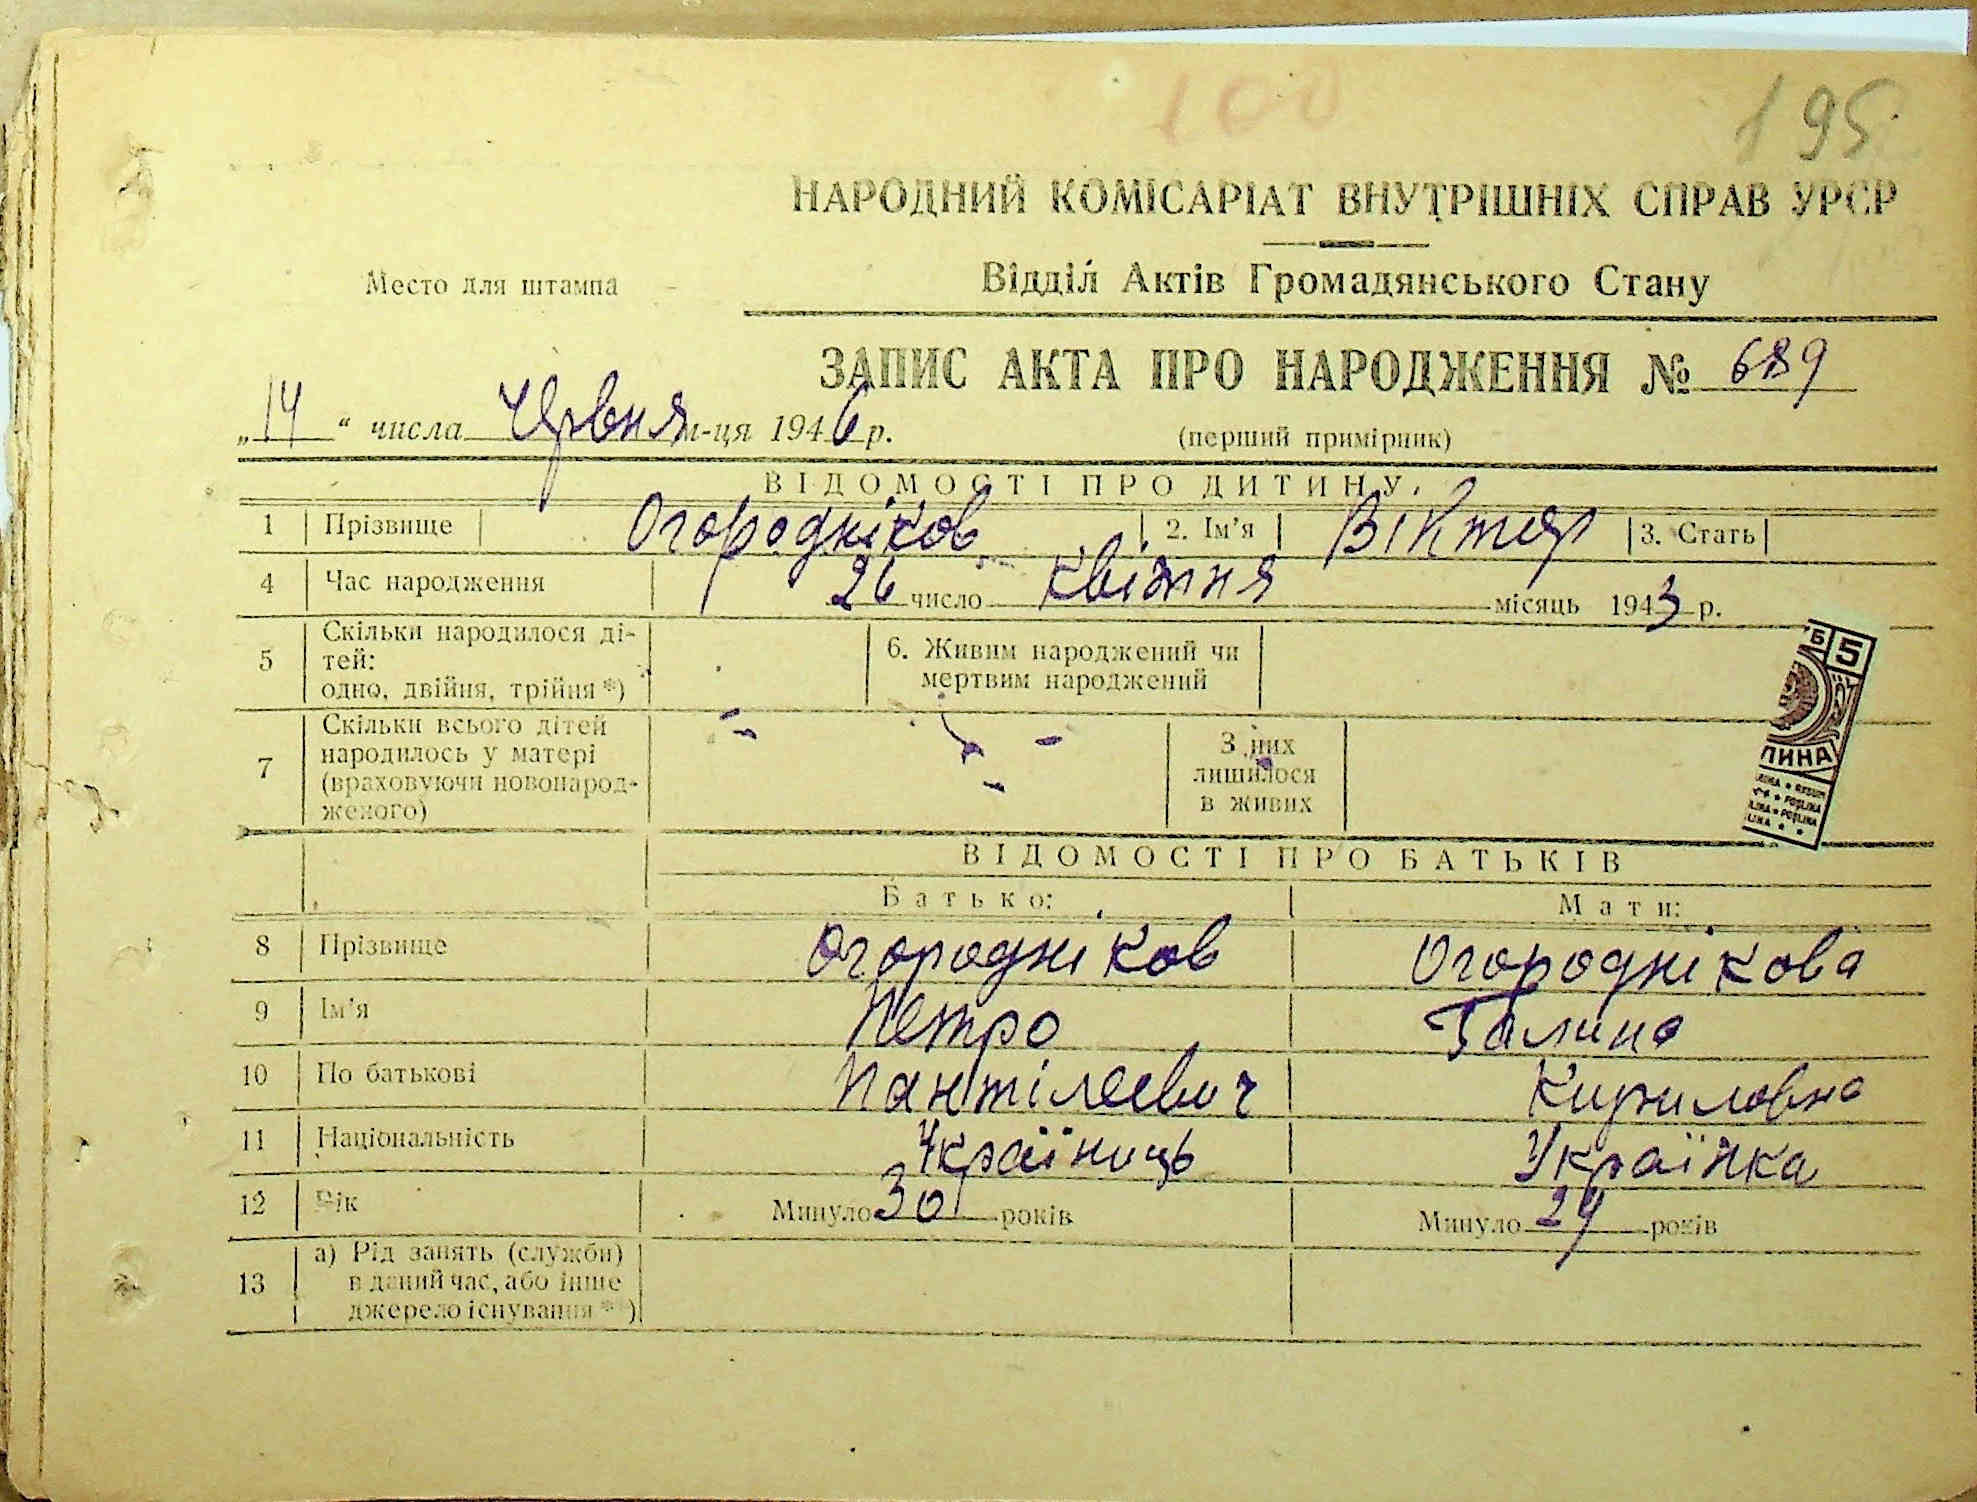 100
195
НАРОДНИЙ КОМІСАРІАТ ВНУТРІШНІХ СПРАВ УРСР
Место для штампа
Відділ Актів Громадянського Стану
ЗАПИС АКТА ПРО НАРОДЖЕННЯ № 689
„14“ числа Червня м-ця 1946 р.
(перший примірник)
ВІДОМОСТІ ПРО ДИТИНУ
1 Прізвище Огородніков 2. Ім'я Віктор 3. Стать
4 Час народження 26 число квітня місяць 1943 р.
5 Скільки народилося ді-
тей:
одно, двійня, трійня *)
6. Живим народжений чи
мертвим народжений
7 Скільки всього дітей
народилось у матері
(враховуючи новонарод-
женого)
З них
лишилося
в живих
Б 5
ЛИНА
ВІДОМОСТІ ПРО БАТЬКІВ
Батько: Мати:
8 Прізвище Огородніков Огороднікова
9 Ім'я Петро Галина
10 По батькові Пантілеевич Кириловна
11 Національність Україниць Українка
12 Вік Минуло 30 років Минуло 24 років
13 а) Рід занять (служби)
в даний час, або інше
джерело існування **)